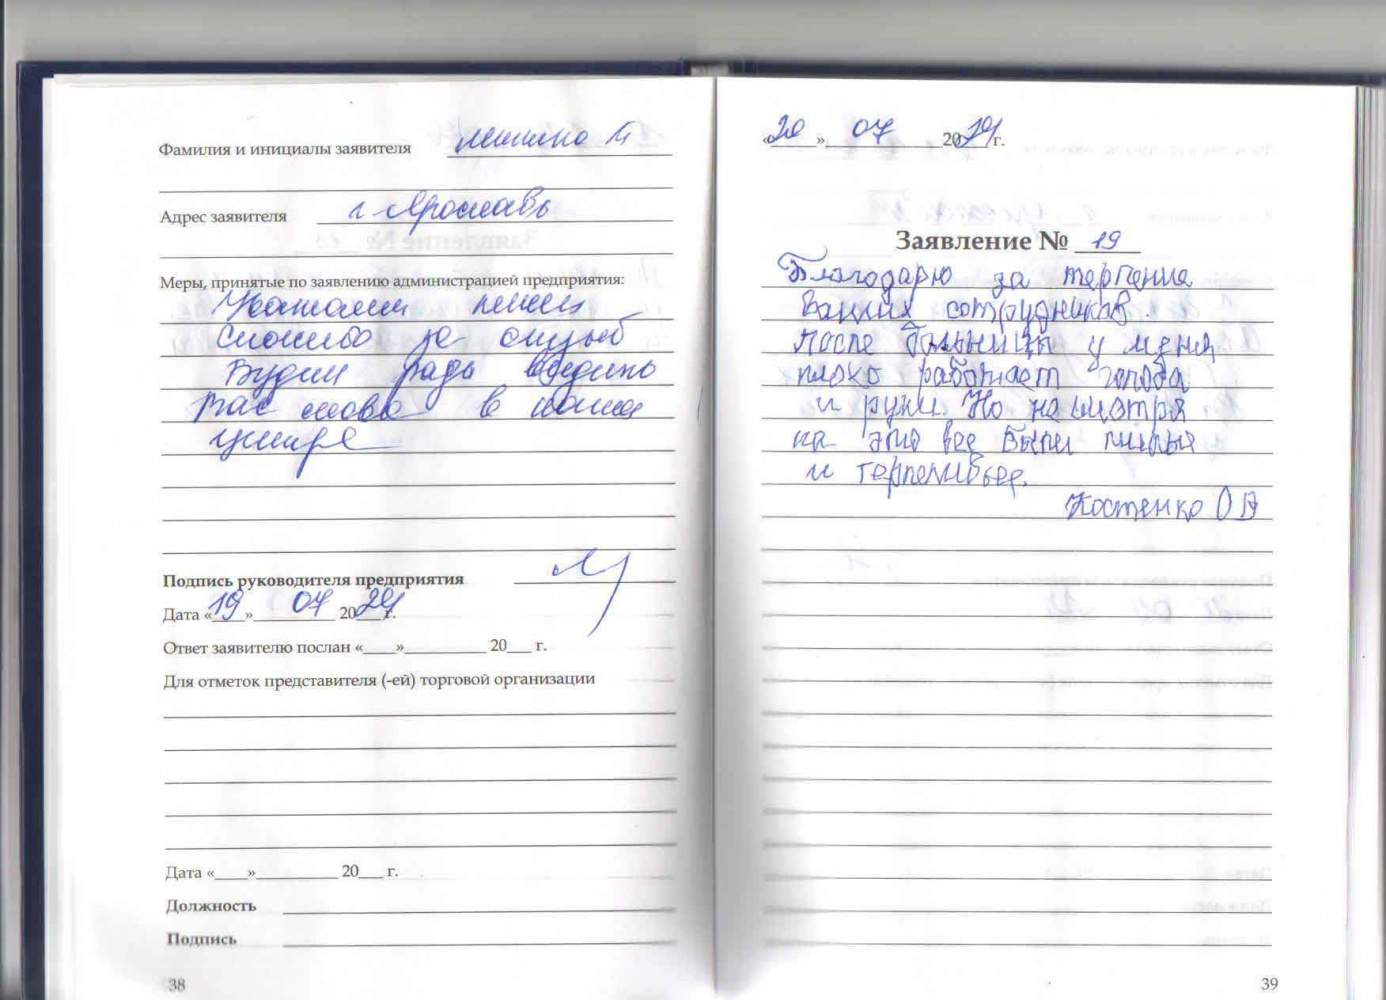 Фамилия и инициалы заявителя
Адрес заявителя г. Ярославль
Меры, принятые по заявлению администрацией предприятия:
Спасибо за
Будем рады видеть
Вас снова в нашем
центре
Подпись руководителя предприятия
Дата «19» 07 2024 г.
Ответ заявителю послан «___»__________ 20___ г.
Для отметок представителя (-ей) торговой организации
Дата «___»__________ 20___ г.
Должность
Подпись
38
«20» 07 2024 г.
Заявление № 19
Благодарю за терпение
Ваших сотрудников.
После больницы у меня
плохо работает голова
и руки. Но не смотря
на это все были милые
и терпеливые.
Костенко О В
39